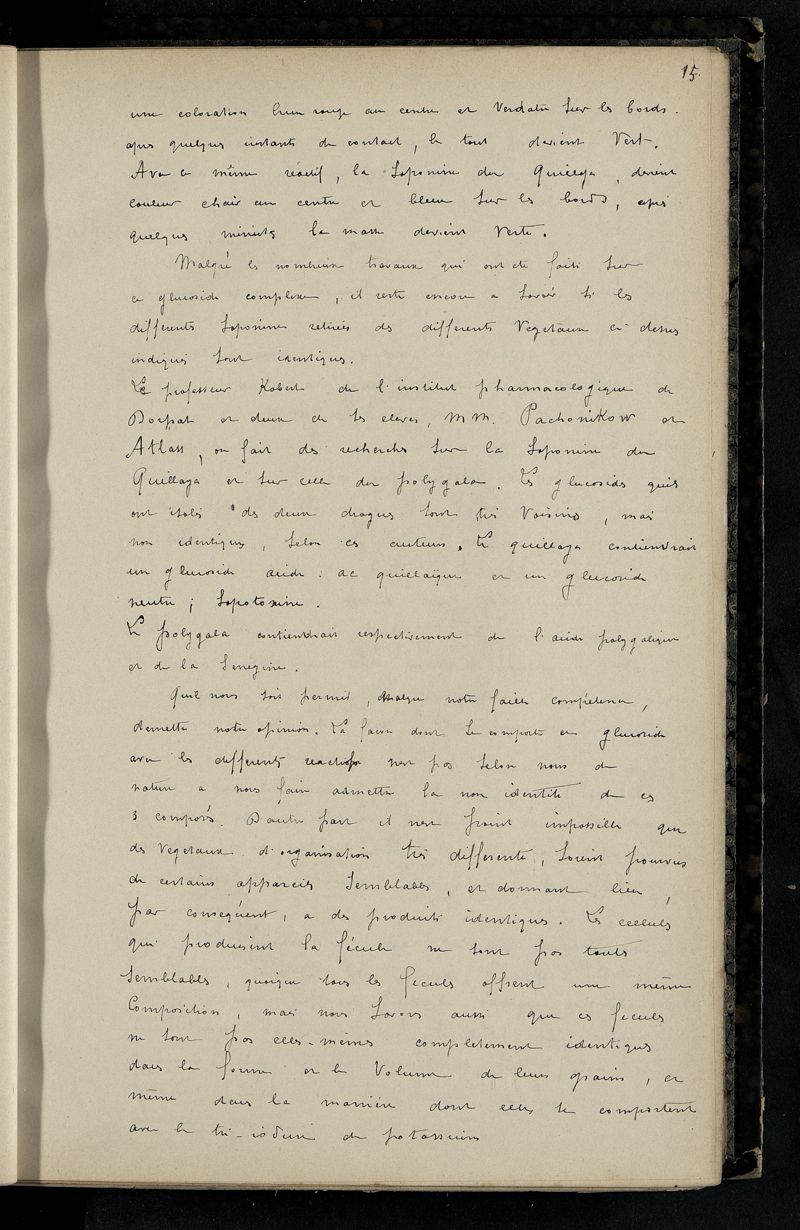 15
une coloration brun rouge au centre et verdatre sur les bords.
apres quelques instants de contact, le tout devient Vert.
Avec ce même réactif, la Saponine du Quillaya, devient
couleur chair au centre et bleue sur les bords, apres
quelques minutes la masse devient Verte.
Malgré les nombreux travaux qui ont été faits sur
ce glucoside complexe, il reste encore a savoir si les
differents Saponines retirées des differents Vegetaux ci-dessus
indiqués sont identiques.
Le professeur Kobert de l'institut pharmacologique de
Dorpat et deux de ses eleves, MM. Pachonikow et
Atlass, on fait des recherches sur la Saponine du
Quillaya et sur celle du polygala. Les glucosides quils
ont isolés des deux drogues sont très Voisins, mais
non identiques, selon ces auteurs. Le quillaya contiendrait
un glucoside acide : ac quillaïque et un glucoside
neutre ; Sapotoxine.
Le polygala contiendrait respectivement de l'acide polygalique
et de la Senegine.
Quil nous soit permis, malgre notre faible competence,
demettre notre opinion. La facon dont se comporte ce glucoside
avec les differents reactifs nest pas selon nous de
nature a nous faire admettre la non identité de ces
3 composés. D'autre part il nest point impossible que
des Vegetaux d'organisation très differente, soient pourvus
de certains appareils semblables, et donnant lieu,
par conséquent, a des produits identiques. Les cellules
qui produisent la fécule ne sont pas toutes
semblables, quoique tous les fecules offrent une même
Composition, mais nous savons aussi que ces fecules
ne sont pas elles-mêmes completement identiques
dans la forme et le Volume de leurs grains, et
même dans la manière dont elles se comportent
avec le tri-iodure de potassium